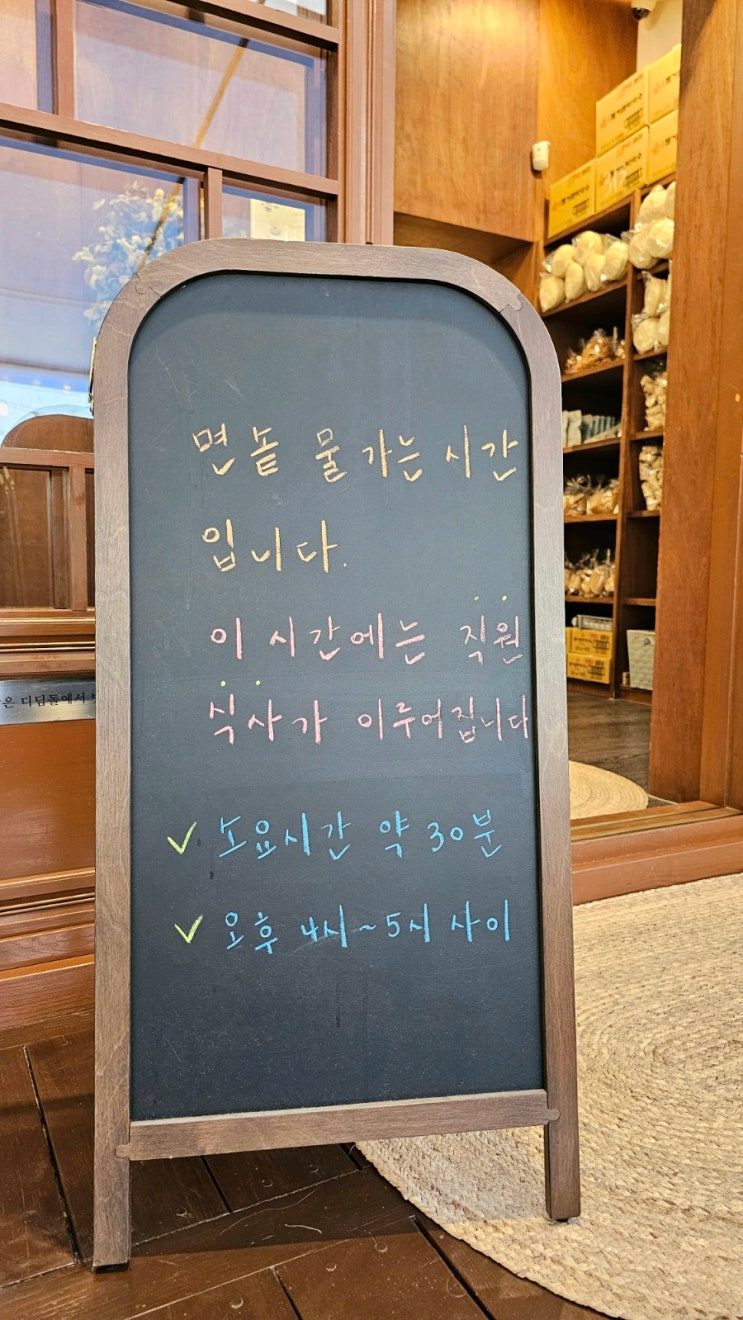 면솥 물가는 시간
입니다.
이 시간에는 직원
식사가 이루어집니다
✓ 소요시간 약 30분
✓ 오후 4시~5시 사이
은 디딤돌에서